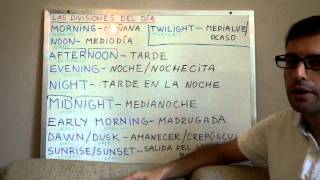 LAS DIVISIONES DEL DÍA
MORNING- MAÑANA
TWILIGHT- MEDIALUZ
OCASO
NOON- MEDIODÍA
AFTERNOON- TARDE
EVENING- NOCHE/NOCHECITA
NIGHT- TARDE EN LA NOCHE
MIDNIGHT- MEDIANOCHE
EARLY MORNING- MADRUGADA
DAWN/DUSK- AMANECER/CREPÚSCU
SUNRISE/SUNSET- SALIDA DEL